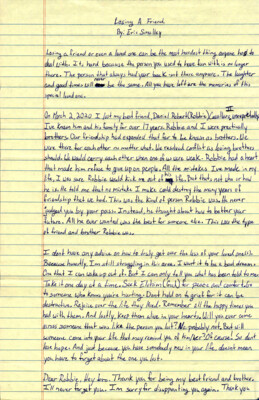 Losing A Friend
By: Eric Smalley
Losing a friend or even a loved one can be the most hardest thing anyone has to
deal with. It's hard because the person you used to have fun with is no longer
there. The person that always had your back isn't there anymore. The laughter
and good times will never be the same. All you have left are the memories of this
special loved one.
II
On March 2, 2020 I lost my best friend, Daniel Robert (Robbie) unexpectedly.
I've known him and his family for over 17 years. Robbie and I were practically
brothers. Our friendship had expanded that far to be known as brothers. We
were there for each other no matter what. We resolved conflict as being brothers
should. We would carry each other when one of us were weak. Robbie had a heart
that made him refuse to give up on people. All the mistakes I've made in my
life, I was sure Robbie would kick me out of his life. But that's not who he is. Instead
he told me that no mistake I make could destroy the many years of
friendship that we had. This was the kind of person Robbie was. He never
judged you by your past. Instead, he thought about how to better your
future. All he ever wanted was the best for someone else. This was the type
of friend and brother Robbie was.
I don't have any advice on how to truly get over the loss of your loved one(s).
Because honestly, I'm still struggling in this area. I want it to be a bad dream.
One that I can wake up out of. But I can only tell you what has been told to me.
Take it one day at a time. Seek Elohim (God) for peace and comfort. Talk
to someone who knows you're hurting. Don't hold on to grief for it can be
destructive. Rejoice over the life they had. Remember all the happy times you
had with them. And lastly, keep them alive in your hearts. Will you ever come
across someone that was like the person you lost? No, probably not. But will
someone come into your life that may remind you of him/her? Of course. So don't
lose hope. And just because you have somebody new in your life, doesn't mean
you have to forget about the one you lost.
Dear Robbie, hey bro. Thank you for being my best friend and brother.
I'll never forget you. I'm sorry for disappointing you again. Thank you